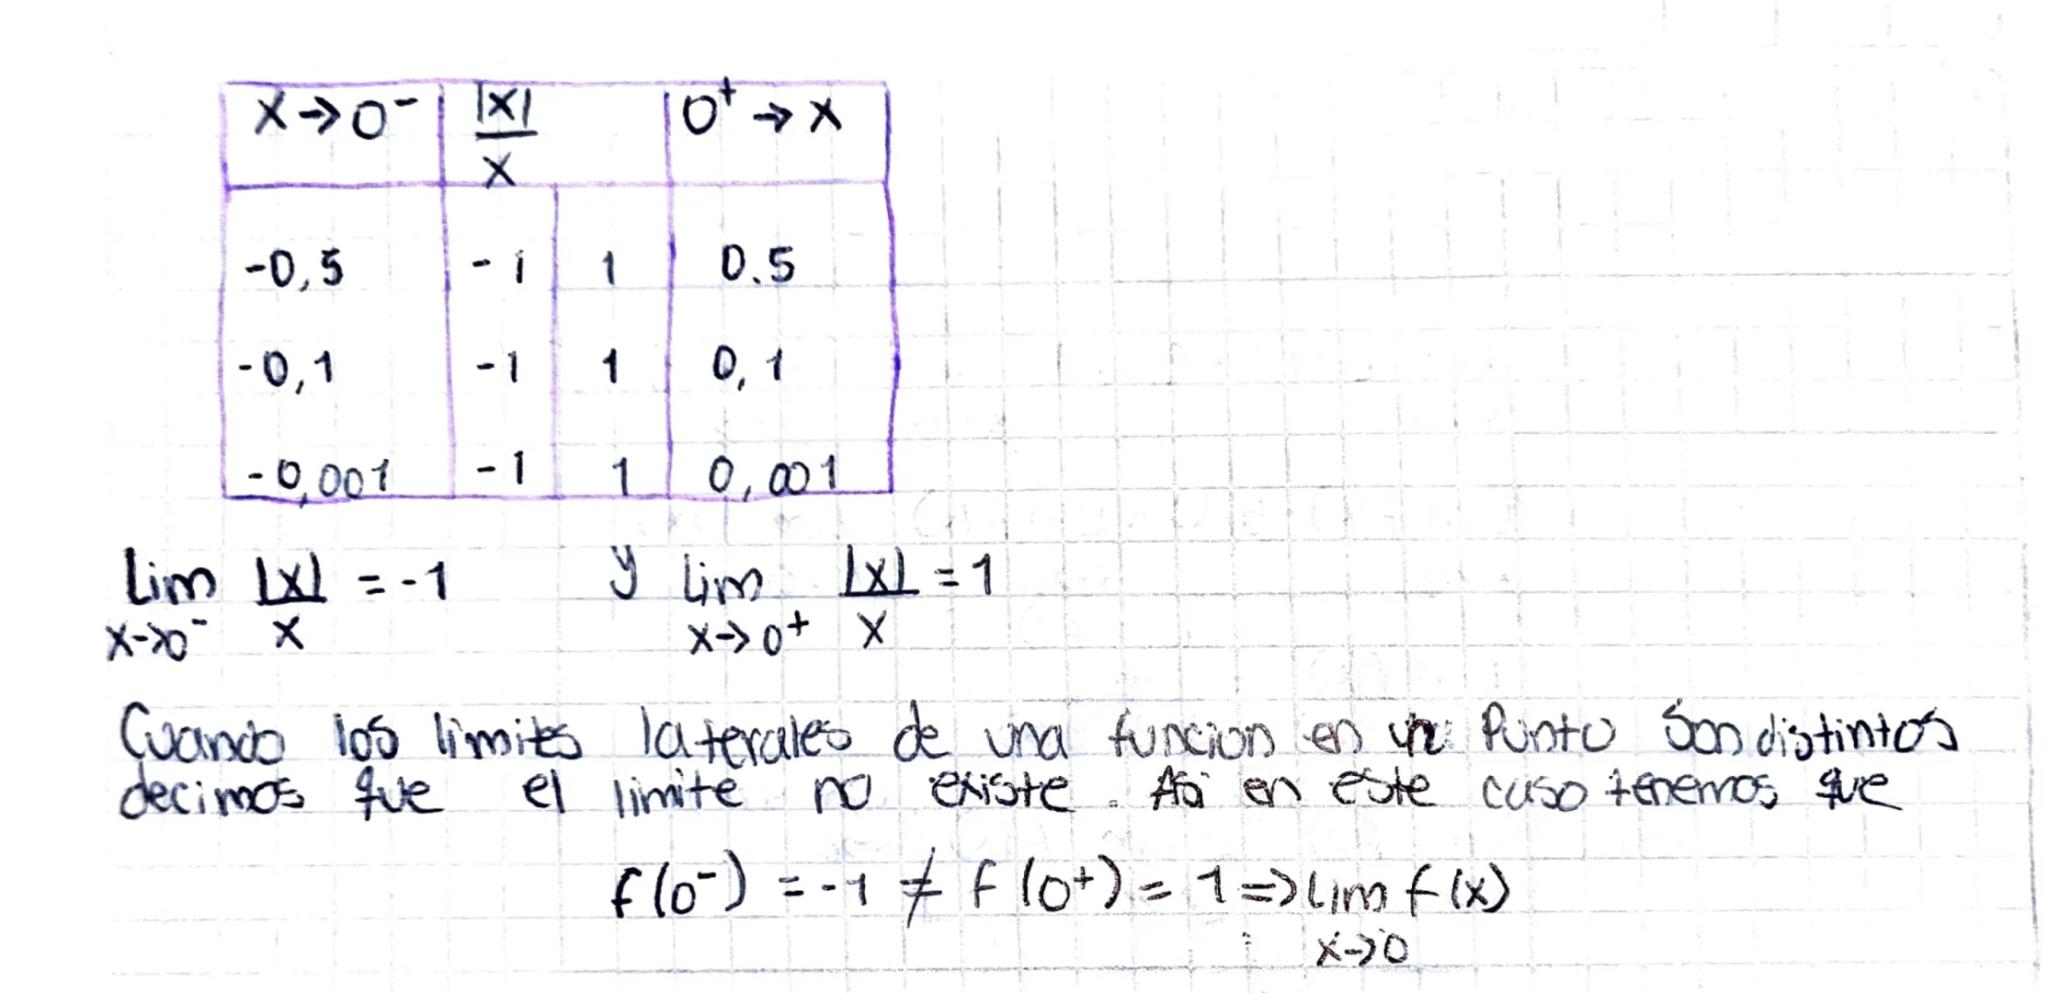 x→0⁻ |x|/x 0⁺→x
-0,5 -1 1 0.5
-0,1 -1 1 0,1
-0,001 -1 1 0,001
Lim |x| = -1 y Lim |x| = 1
x→0⁻ x x→0⁺ x
Cuando los limites laterales de una funcion en un Punto son distintos
decimos que el limite no existe. Asi en este caso tenemos que
f(0⁻) = -1 ≠ f(0⁺) = 1 ⇒ Lim f(x)
x→0